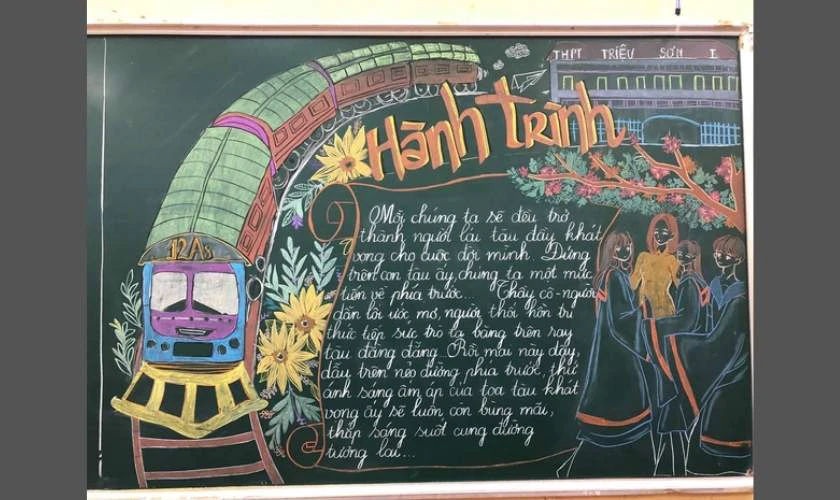 THPT TRIỆU SƠN I
Hành trình
12A3
Mỗi chúng ta sẽ đều trở
thành người lái tàu đầy khát
vọng cho cuộc đời mình. Đứng
trên con tàu ấy, chúng ta một mực
tiến về phía trước... Thầy cô - người
dẫn lối ước mơ, người thổi hồn tri
thức tiếp sức trò ta băng trên ray
tàu đằng đẵng. Rồi mai này đây,
dẫu trên nẻo đường phía trước, thứ
ánh sáng ấm áp của toa tàu khát
vọng ấy sẽ luôn còn bùng mãi,
thắp sáng suốt cung đường
tương lai...